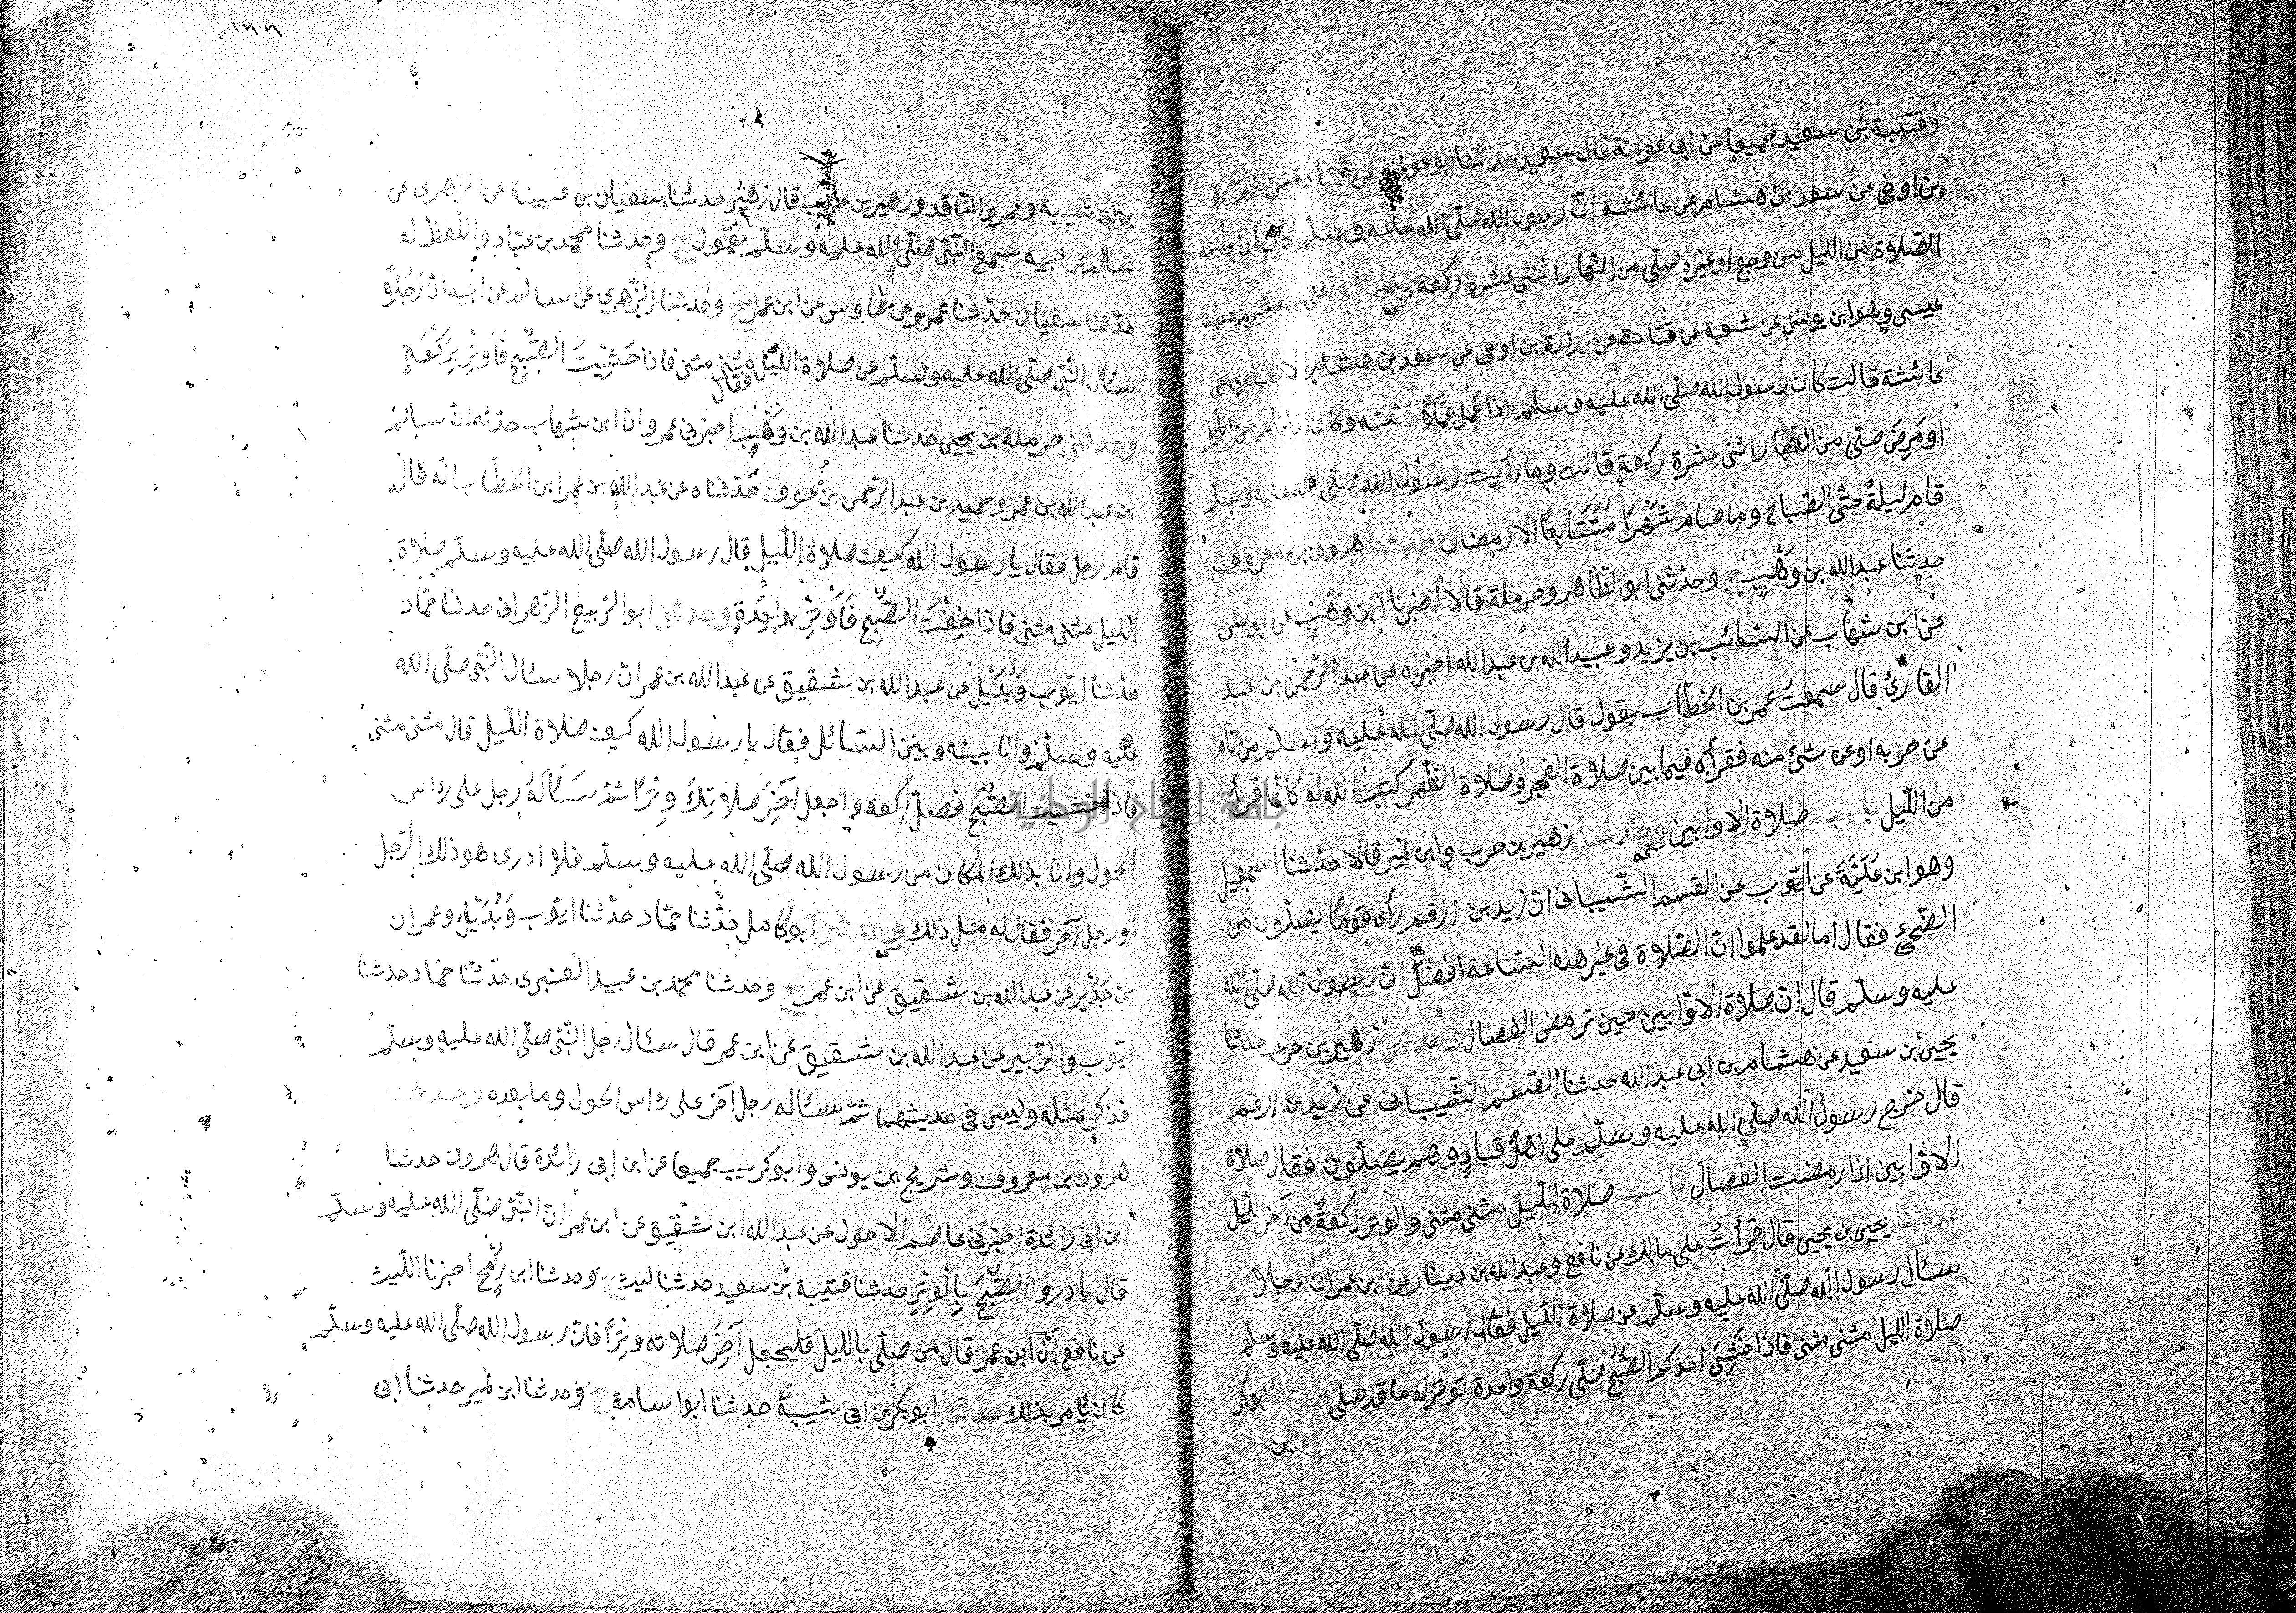 وقتيبة بن سعيد جميعا عن ابى عوانة قال سعيد حدثنا ابو عوانة عن قتادة عن زرارة
بن اوفى عن سعد بن هشام عن عائشة انّ رسول الله صلّى الله عليه وسلّم كان اذا فاتته
الصّلاة من الليل من وجع او غيره صلّى من النّهار اثنتى عشرة ركعة وحدثنا على بن خشرم حدثنا
عيسى وهو ابن يونس عن شعبة عن قتادة عن زرارة بن اوفى عن سعد بن هشام الانصارى عن
عائشة قالت كان رسول الله صلّى الله عليه وسلّم اذا عَمِلَ عَمَلًا اثبته وكان اذا نام من اللّيل
او مَرِضَ صلّى من النّهار اثنى عشرة ركعةً قالت وما رأيت رسول الله صلّى الله عليه وسلّم
قام ليلةً حتّى الصّباح وما صام شَهْرًا مُتَتَابِعًا الا رمضان حدثنا هرون بن معروف
حدثنا عبد الله بن وَهْبٍ ح وحدّثنى ابو الطّاهر وحرملة قالا أخبرنا ابن وَهْبٍ عن يونس
عن ابن شهاب عن السّائب بن يزيد وعبيد الله بن عبد الله اخبراه عن عبد الرّحمن بن عبد
القارئ قال سمعتُ عمر بن الخطّاب يقول قال رسول الله صلّى الله عليه وسلّم من نام
عن حزبه او عن شئ منه فقرأه فيما بين صلاة الفجر وصلاة الظّهر كتب الله له كانّما قرأه
من اللّيل باب صلاة الاوابين وحدثنا زهير بن حرب وابن نمير قالا حدّثنا اسمعيل
وهو ابن عُلَيَّةَ عن ايّوب عن القسم الشّيبانى انّ زيد بن ارقم رأى قومًا يصلّون من
الضّحىٰ فقال اما لقد علموا انّ الصّلاة فى غير هذه السّاعة افضلُ انّ رسول الله صلّى الله
عليه وسلّم قال انّ صلاة الاوّابين حين ترمض الفصال وحدثنى زهير بن حرب حدثنا
يحيى بن سعيد عن هشام بن ابى عبد الله حدثنا القسم الشّيبانى عن زيد بن ارقم
قال خرج رسول الله صلّى الله عليه وسلّم على اهل قباءٍ وهم يصلّون فقال صلاة
الاوّابين اذا رمضت الفصال باب صلاة اللّيل مثنى مثنى والوتر ركعةً من آخر اللّيل
حدثنا يحيى بن يحيى قال قرأتُ على مالك عن نافع وعبد الله بن دينار عن ابن عمر ان رجلا
سئال رسول الله صلّى الله عليه وسلّم عن صلاة اللّيل فقال رسول الله صلّى الله عليه وسلّم
صلاة الليل مثنى مثنى فاذا خَشِىَ أحدكم الصّبح صلّى ركعة واحدة توتر له ما قد صلى حدثنا ابو بكر
بن
١٨٨
بن ابى شيبة وعمرو النّاقد وزهير بن حرب قال زهير حدثنا سفيان بن عيينة عن الزهرى عن
سالم عن ابيه سمع النّبىّ صلّى الله عليه وسلّم يقول ح وحدثنا محمد بن عبّاد واللّفظ له
حدّثنا سفيان حدّثنا عمرو عن طاوس عن ابن عمر ح وحدثنا الزّهرى عن سالم عن ابيه انّ رَجُلًا
سئال النّبّى صلّى الله عليه وسلّم عن صلاة اللّيل فقال مثنى مثنى فاذا خَشِيتَ الصُّبْحَ فَاَوتِرْ بِرَكْعَةٍ
وحدثنى حرملة بن يحيى حدثنا عبد الله بن وَهْبٍ اخبرنى عمرو انّ ابن شهاب حدّثه انّ سالم
بن عبد الله بن عمر وحميد بن عبد الرّحمن بن عوف حَدّثناه عن عبد الله بن عمر ابن الخطّاب انّه قال
قام رجل فقال يا رسول الله كيف صلاة اللّيل قال رسول الله صلّى الله عليه وسلّم صلاة
الليل مثنى مثنى فاذا خِفْتَ الصُّبْحَ فَاَوْتِرْ بواحِدَةٍ وحدثنى ابو الرّبيع الزّهرانى حدثنا حمّاد
حدّثنا ايّوب وَبُدَيْل عن عبد الله بن شقيق عن عبد الله بن عمر انّ رجلا سئال النّبّى صلّى الله
عليه وسلّم وانا بينه وبين السّائل فقال يا رسول الله كيف صلاة اللّيل قال مثنى مثنى
فاذا خشيت الصُّبْحَ فصلّ ركعة واجعل آخِرَ صلاتِكَ وِتْرًا ثمّ سَاَلَهُ رجل على راس
الحول وانا بذلك المكان من رسول الله صلّى الله عليه وسلّم فلا ادرى هو ذلك الرّجل
او رجل آخر فقال له مثل ذلك وحدثنى ابو كامل حدّثنا حمّاد حدّثنا ايّوب وَبُدَيْل وعمران
بن حُدَيْر عن عبد الله بن شقيق عن ابن عمر ح وحدثنا محمد بن عبيد العنبرى حدّثنا حمّاد حدثنا
ايّوب والزّبير عن عبد الله بن شقيق عن ابن عمر قال سئال رجل النّبّى صلّى الله عليه وسلّم
فذكر بمثله وليس فى حديثهما ثمّ سئاله رجل آخر على راس الحول وما بعده وحدثنا
هرون بن معروف وشريح بن يونس وابو كريب جميعا عن ابن ابى زائدة قال هرون حدثنا
ابن ابى زائدة اخبرنى عاصم الاحول عن عبد الله ابن شقيق عن ابن عمر انّ النّبّى صلّى الله عليه وسلّم
قال بادروا الصُّبْحَ بِالْوِتْرِ حدثنا قتيبة بن سعيد حدثنا ليث ح وحدثنا ابن رُمْحٍ اخبرنا اللّيث
عن نافع أنّ ابن عمر قال من صلّى بالليل فليجعل آخِرَ صلاته وِتْرًا فانّ رسول الله صلّى الله عليه وسلّم
كان يأمر بذلك حدثنا ابو بكر بن ابى شيبة حدثنا ابو اسامة ح وحدثنا ابن نمير حدثنا ابى